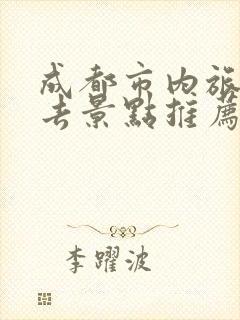 成都市内旅
去景點推薦
李躍波